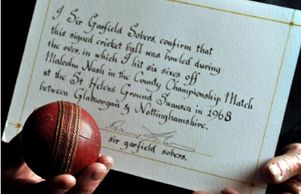 I Sir Garfield Sobers, confirm that
this signed cricket ball was bowled during
the over, in which I hit six sixes off
Malcolm Nash in the County Championship Match
at the St Helens Ground Swansea in 1968
between Glamorgan & Nottinghamshire.
sir garfield sobers.